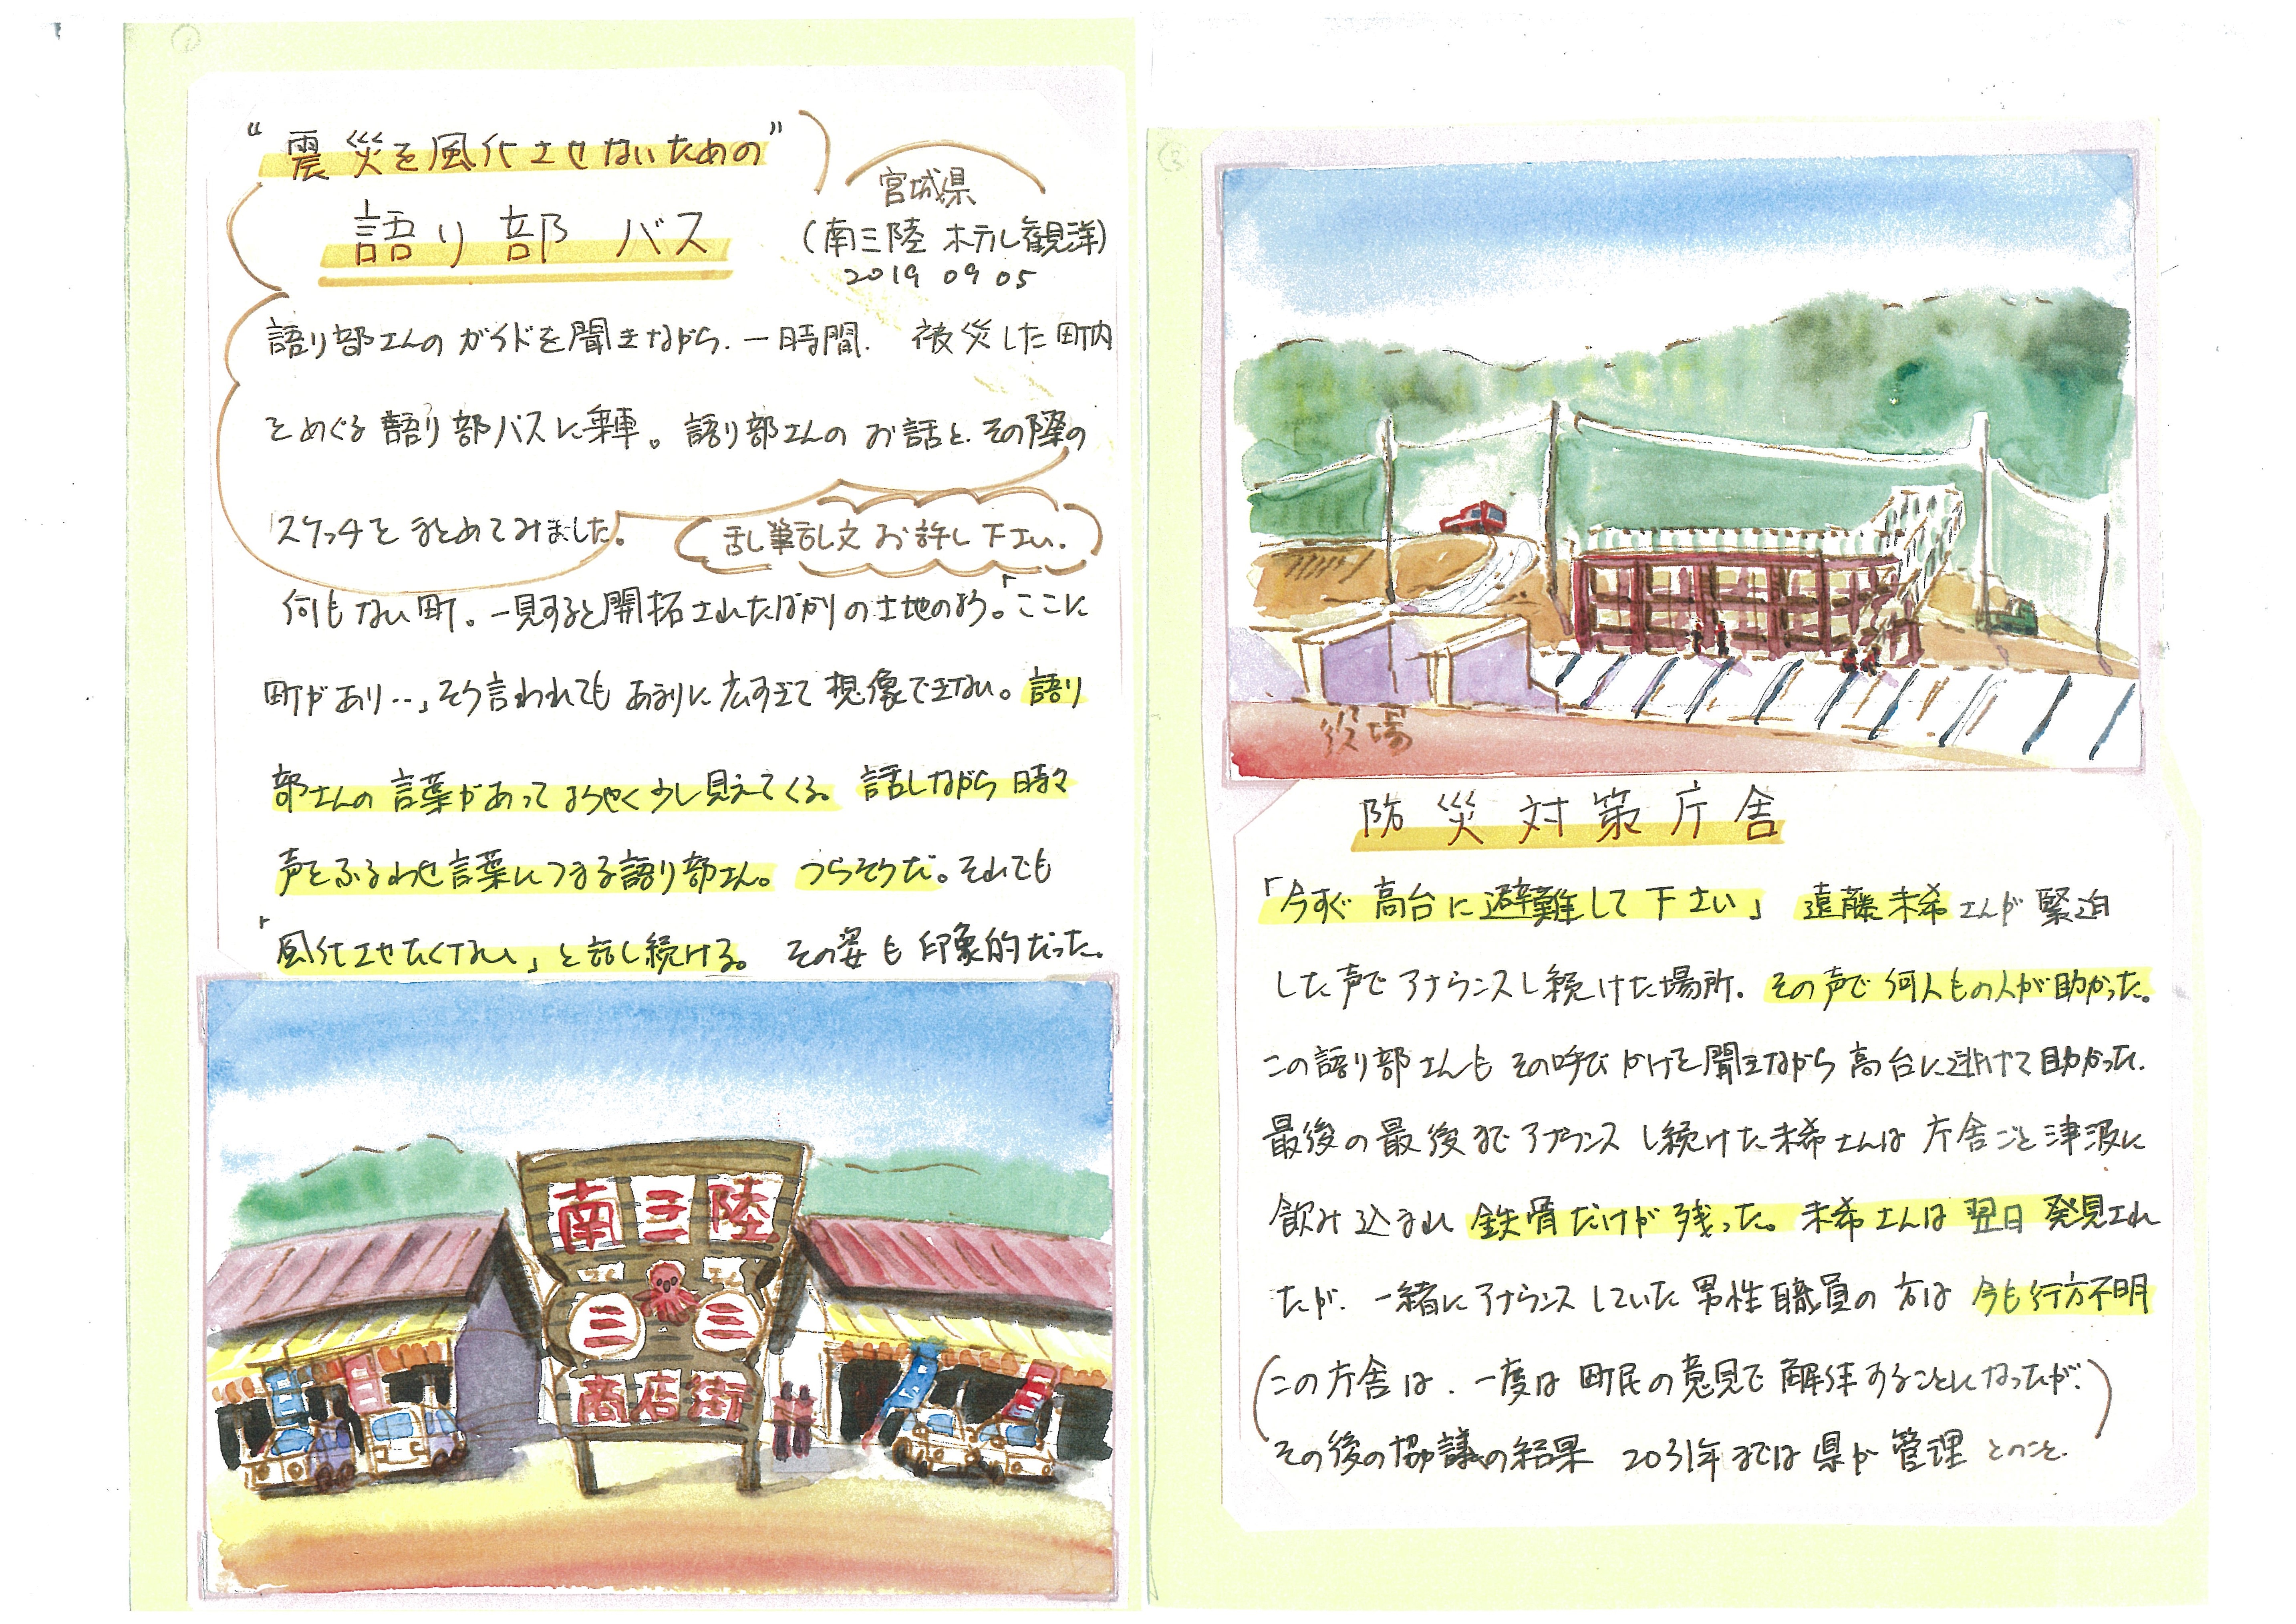 ①
“震災を風化させないための”
語り部バス
宮城県
(南三陸 ホテル観洋)
2019 09 05
語り部さんのガイドを聞きながら、一時間、被災した町内
をめぐる語り部バスに乗車。語り部さんのお話と、その際の
スケッチをまとめてみました。
乱筆乱文お許し下さい。
何もない町。一見すると開拓されたばかりの土地のよう。「ここに
町があり…」そう言われてもあまりに広すぎて想像できない。語り
部さんの言葉があってようやく少し見えてくる。話しながら時々
声をふるわせ言葉につまる語り部さん。つらそうだ。それでも
「風化させたくない」と話し続ける。その姿も印象的だった。
南三陸
さん さん
三 三
商店街
②
役場
防災対策庁舎
「今すぐ高台に避難して下さい」遠藤未希さんが緊迫
した声でアナウンスし続けた場所。その声で何人もの人が助かった。
この語り部さんもその呼びかけを聞きながら高台に逃げて助かった。
最後の最後までアナウンスし続けた未希さんは庁舎ごと津波に
飲み込まれ鉄骨だけが残った。未希さんは翌日発見され
たが、一緒にアナウンスしていた男性職員の方は今も行方不明
(この庁舎は、一度は町民の意見で解体することになったが、
その後の協議の結果 2031年までは県が管理とのこと。)